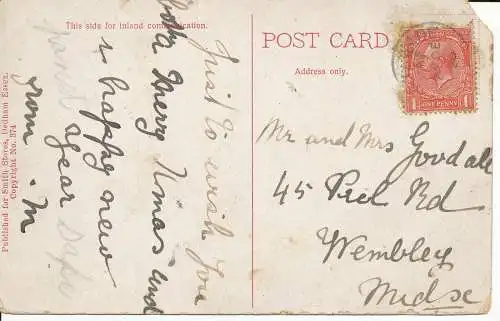 This side for inland communication.
POST CARD
Address only.
ONE PENNY
Just to wish you
both a Merry Xmas and
a happy new
year
from M
Mr and Mrs Goodall
45 Peel Rd
Wembley
Midsx
Published for Smith Stores, Dedham Essex.
Copyright No. 374